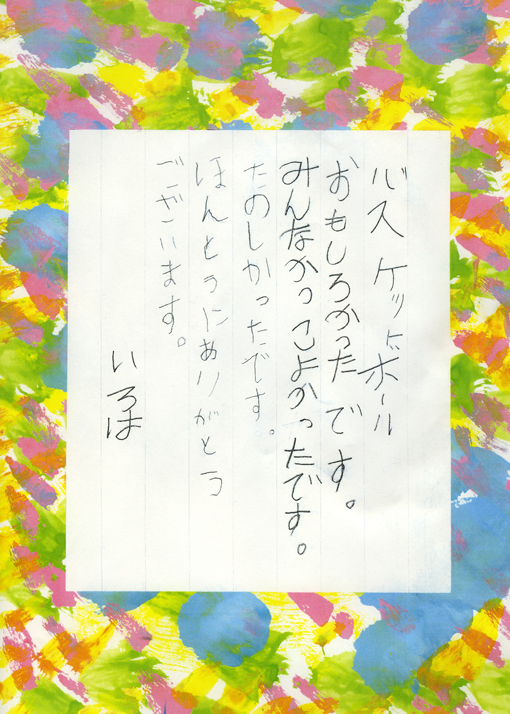 バスケットボール
おもしろかったです。
みんなかっこよかったです。
たのしかったです。
ほんとうにありがとう
ございます。
いろは